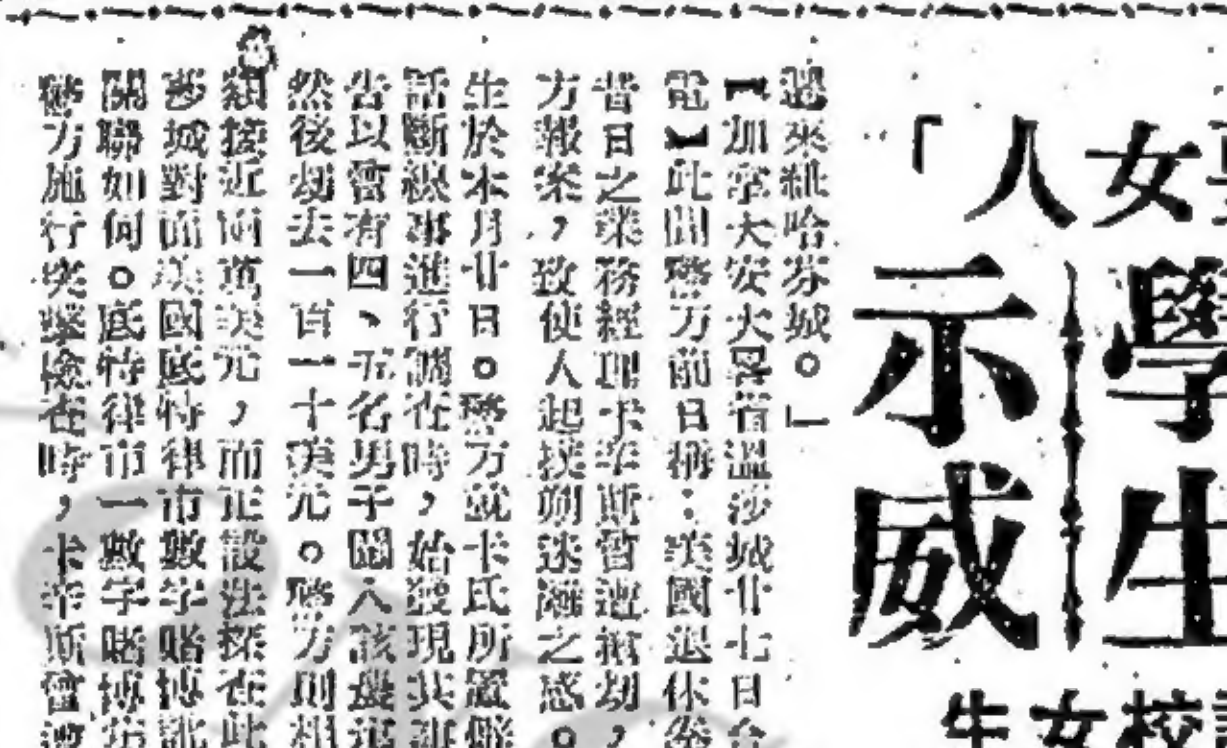 女
「人
學生
示威
校女生
遜來維哈芬城。」
【加拿大安大畧省溫沙城廿七日合
電】此間警方前日稱:美國退休
昔日之業務經理卡辛斯曾遭搶劫,
方報案,致使人起撲朔迷離之感。
生於本月廿日。警方就卡氏所
話斷線事進行調查時,始發現其
告以曾有四、五名男子闖入該農
然後刼去一百一十美元。警方則相
接近兩萬美元,而正設法探查此
沙城對面美國底特律市數字賭博
關聯如何。底特律市一數字賭博
警方施行突擊檢查時,卡辛斯曾